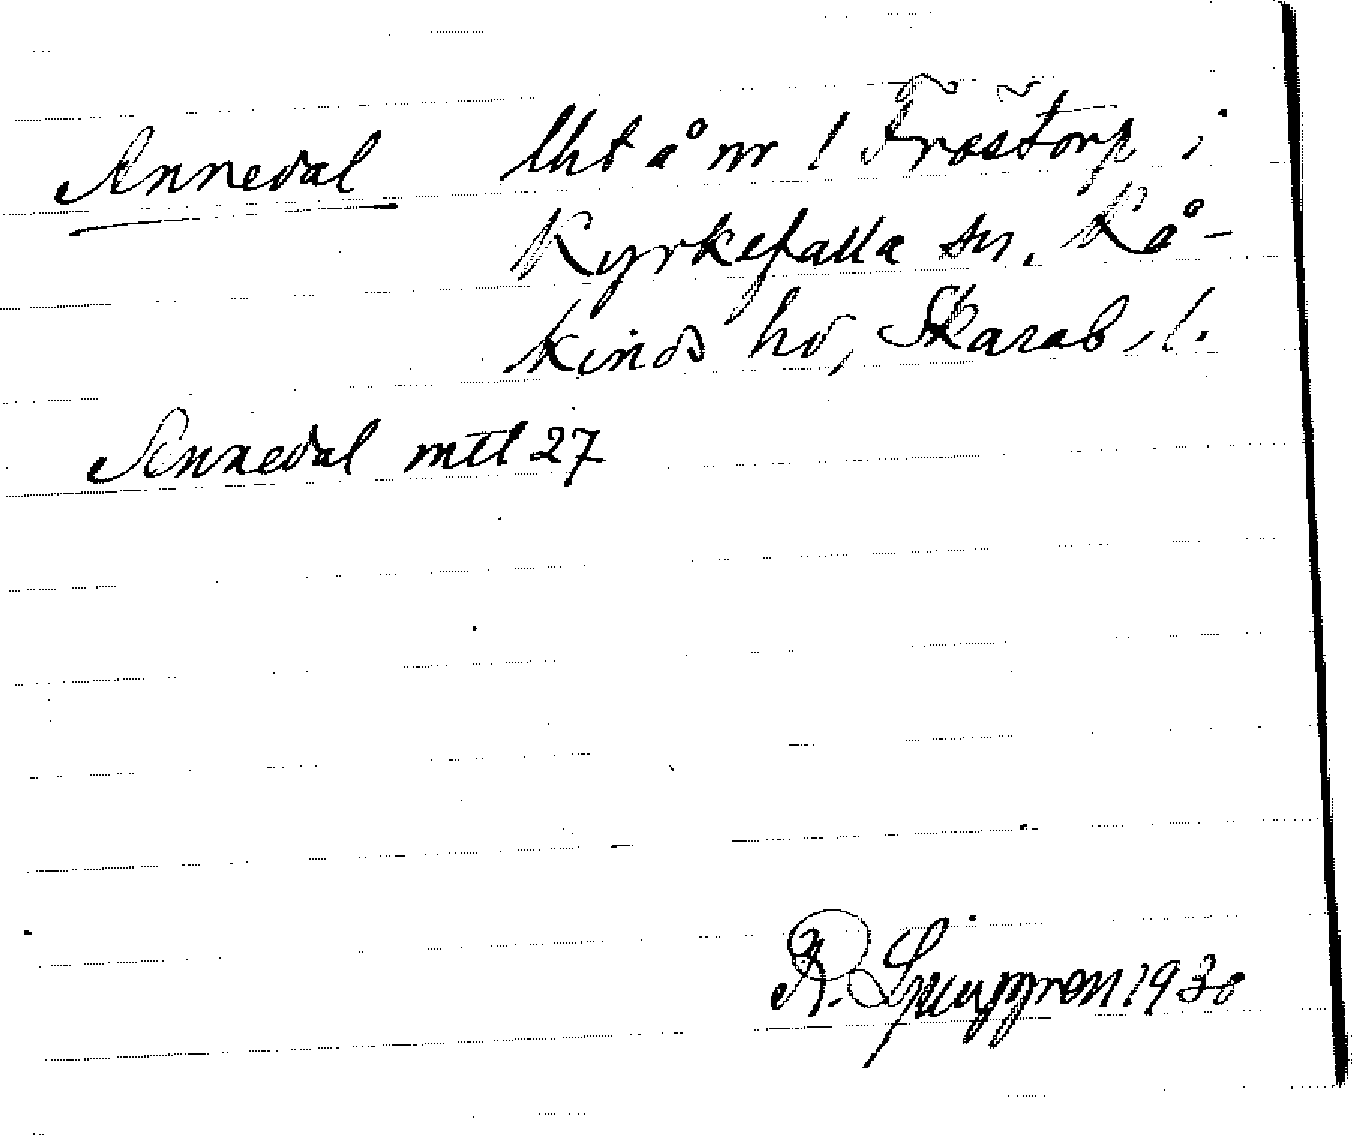 Annedal lht å nr 1 Fröstorp i
Kyrkefalla sn, Kå-
kinds hd, Skarab. l.
Annedal mtl 27
R. Ljunggren 1930